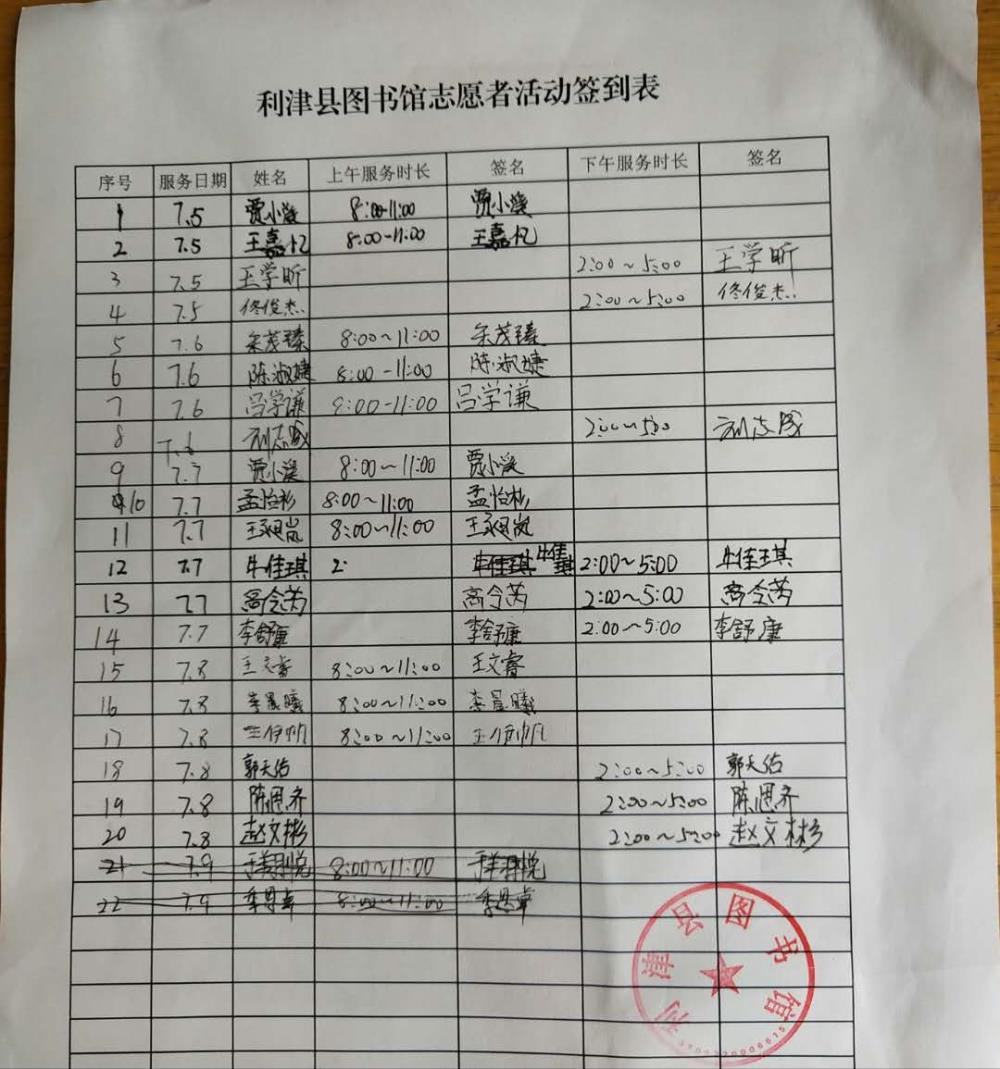 利津县图书馆志愿者活动签到表
序号 服务日期 姓名 上午服务时长 签名 下午服务时长 签名
1 7.5 贾小溪 8:00-11:00 贾小溪
2 7.5 王嘉忆 8:00-11:00 王嘉忆
3 7.5 王学昕 2:00~5:00 王学昕
4 7.5 佟俊杰 2:00~5:00 佟俊杰
5 7.6 茂臻 8:00~11:00 茂臻
6 7.6 陈淑婕 8:00-11:00 陈淑婕
7 7.6 吕学谦 8:00-11:00 吕学谦
8 7.6 刘志 2:00~5:00 刘志
9 7.7 贾小溪 8:00~11:00 贾小溪
10 7.7 孟怡杉 8:00~11:00 孟怡杉
11 7.7 王岚 8:00~11:00 王岚
12 7.7 牛佳琪 2: 牛佳琪 牛佳琪 2:00~5:00 牛佳琪
13 7.7 高令芮 高令芮 2:00~5:00 高令芮
14 7.7 李舒康 李舒康 2:00~5:00 李舒康
15 7.8 王文睿 8:00~11:00 王文睿
16 7.8 李晨曦 8:00~11:00 李晨曦
17 7.8 王伊帆 8:00~11:00 王伊帆
18 7.8 郭天佑 2:00~5:00 郭天佑
19 7.8 陈思齐 2:00~5:00 陈思齐
20 7.8 赵文彬 2:00~5:00 赵文彬
21 7.9 8:00~11:00
22 7.9 8:00~11:00
利津县图书馆